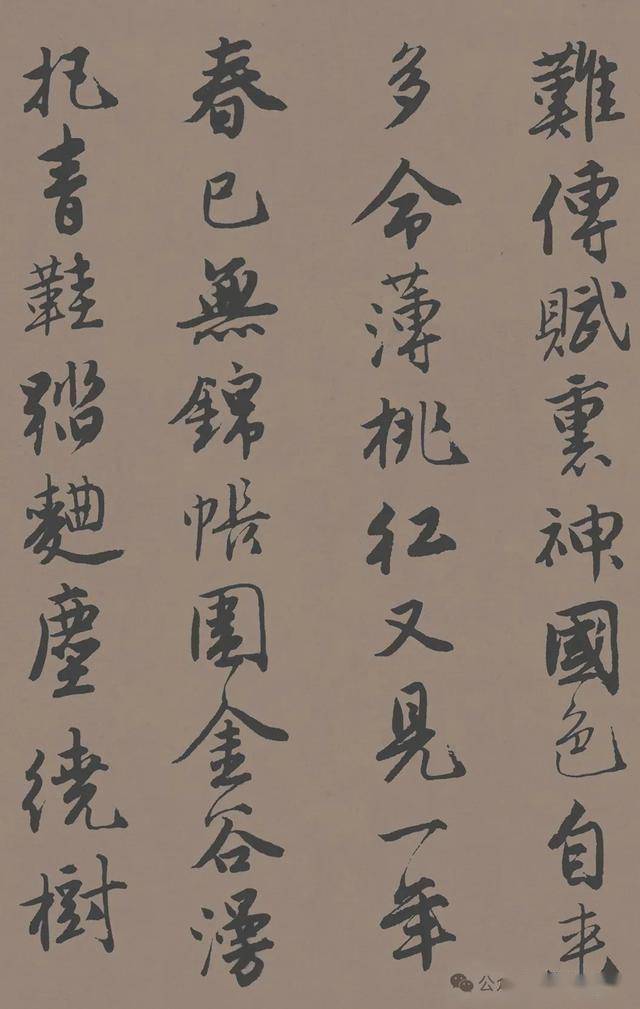 難傳賦裏神國色自來
多命薄桃紅又見一年
春已無錦帳圍金谷漫
把青鞋踏麴塵繞樹
公